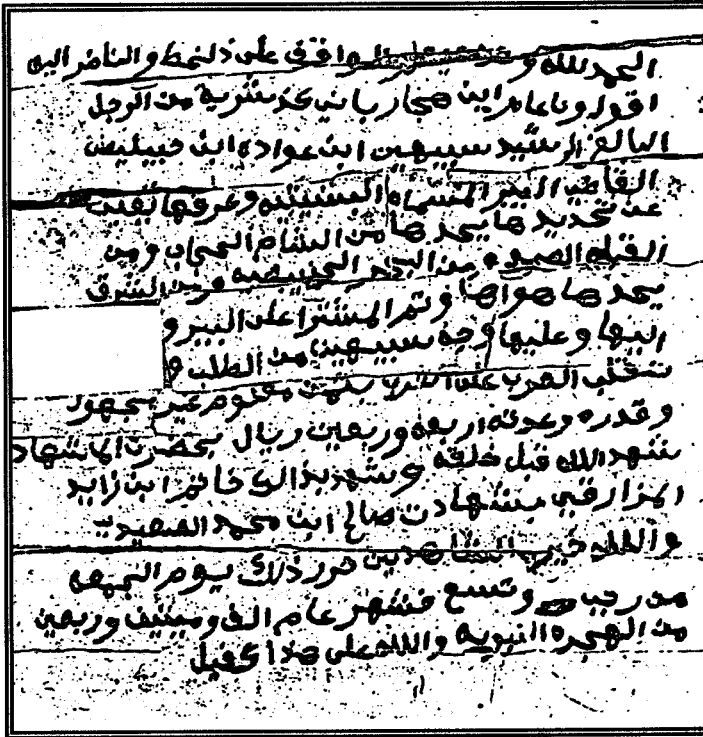 الحمد لله و الواقف على ذلخط والناضر اليه
اقول وناعامر ابن هجار باني قد شريه من الرجل
البالغ الرشيد سبيهين ابن عواده ابن حبيليص
القاضي البير المسماه البشيليه وعرفها يغني
عن تحديد ها يحد ها من الشام الحجاب ومن
القبله الصيده ومن البحر الحذيبيه ومن الشرق
يحد ها هواها وتم المشترا على البير و
اليها وعليها وجه سبيهين من الطلب و
شقلب الغرب على الترب بثمن معلوم غير مجهول
وقدره وعدته اربعه وربعين ريال بحضرت الاشهاد
شهد الله قبل خلقه شهد بذالك خاتم ابن زايد
المزارقي بشهادت صالح ابن محمد الصعيدي
والله خير الشاهدين حرر ذلك يوم الجمعه
من رجب وتسع فشهر عام الف وميتين وربعين
من الهجره النبويه والله على هذا كفيل